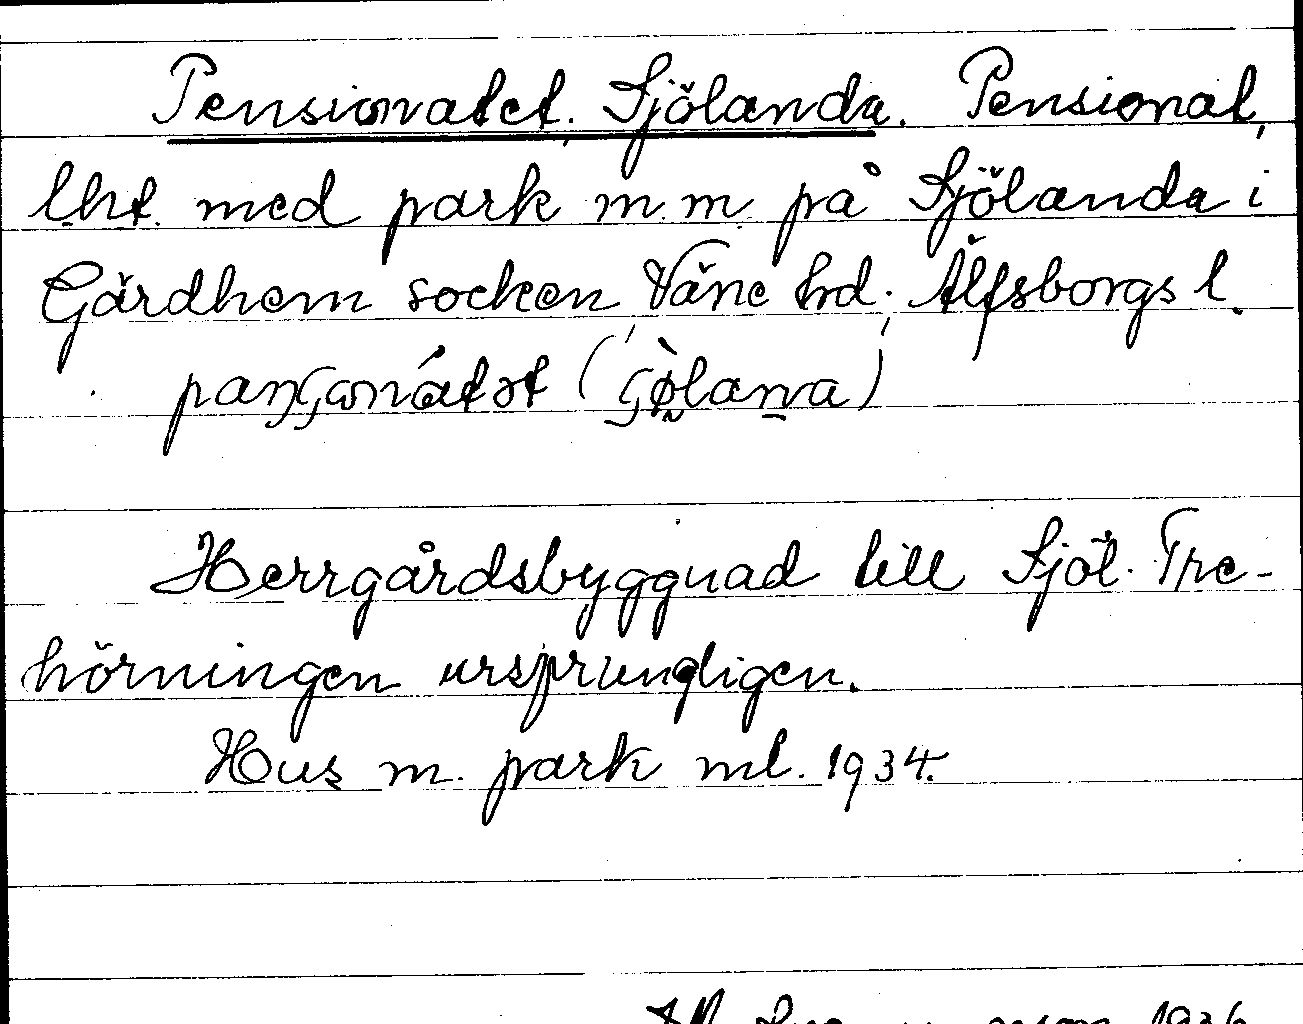 Pensionatet Sjölanda. Pensionat,
lht. med park m.m. på Sjölanda i
Gärdhem socken, Väne hd. Älfsborgs l.
Herrgårdsbyggnad till Sjöl. Tre-
hörningen ursprungligen.
Hus m. park ml. 1934.
1936